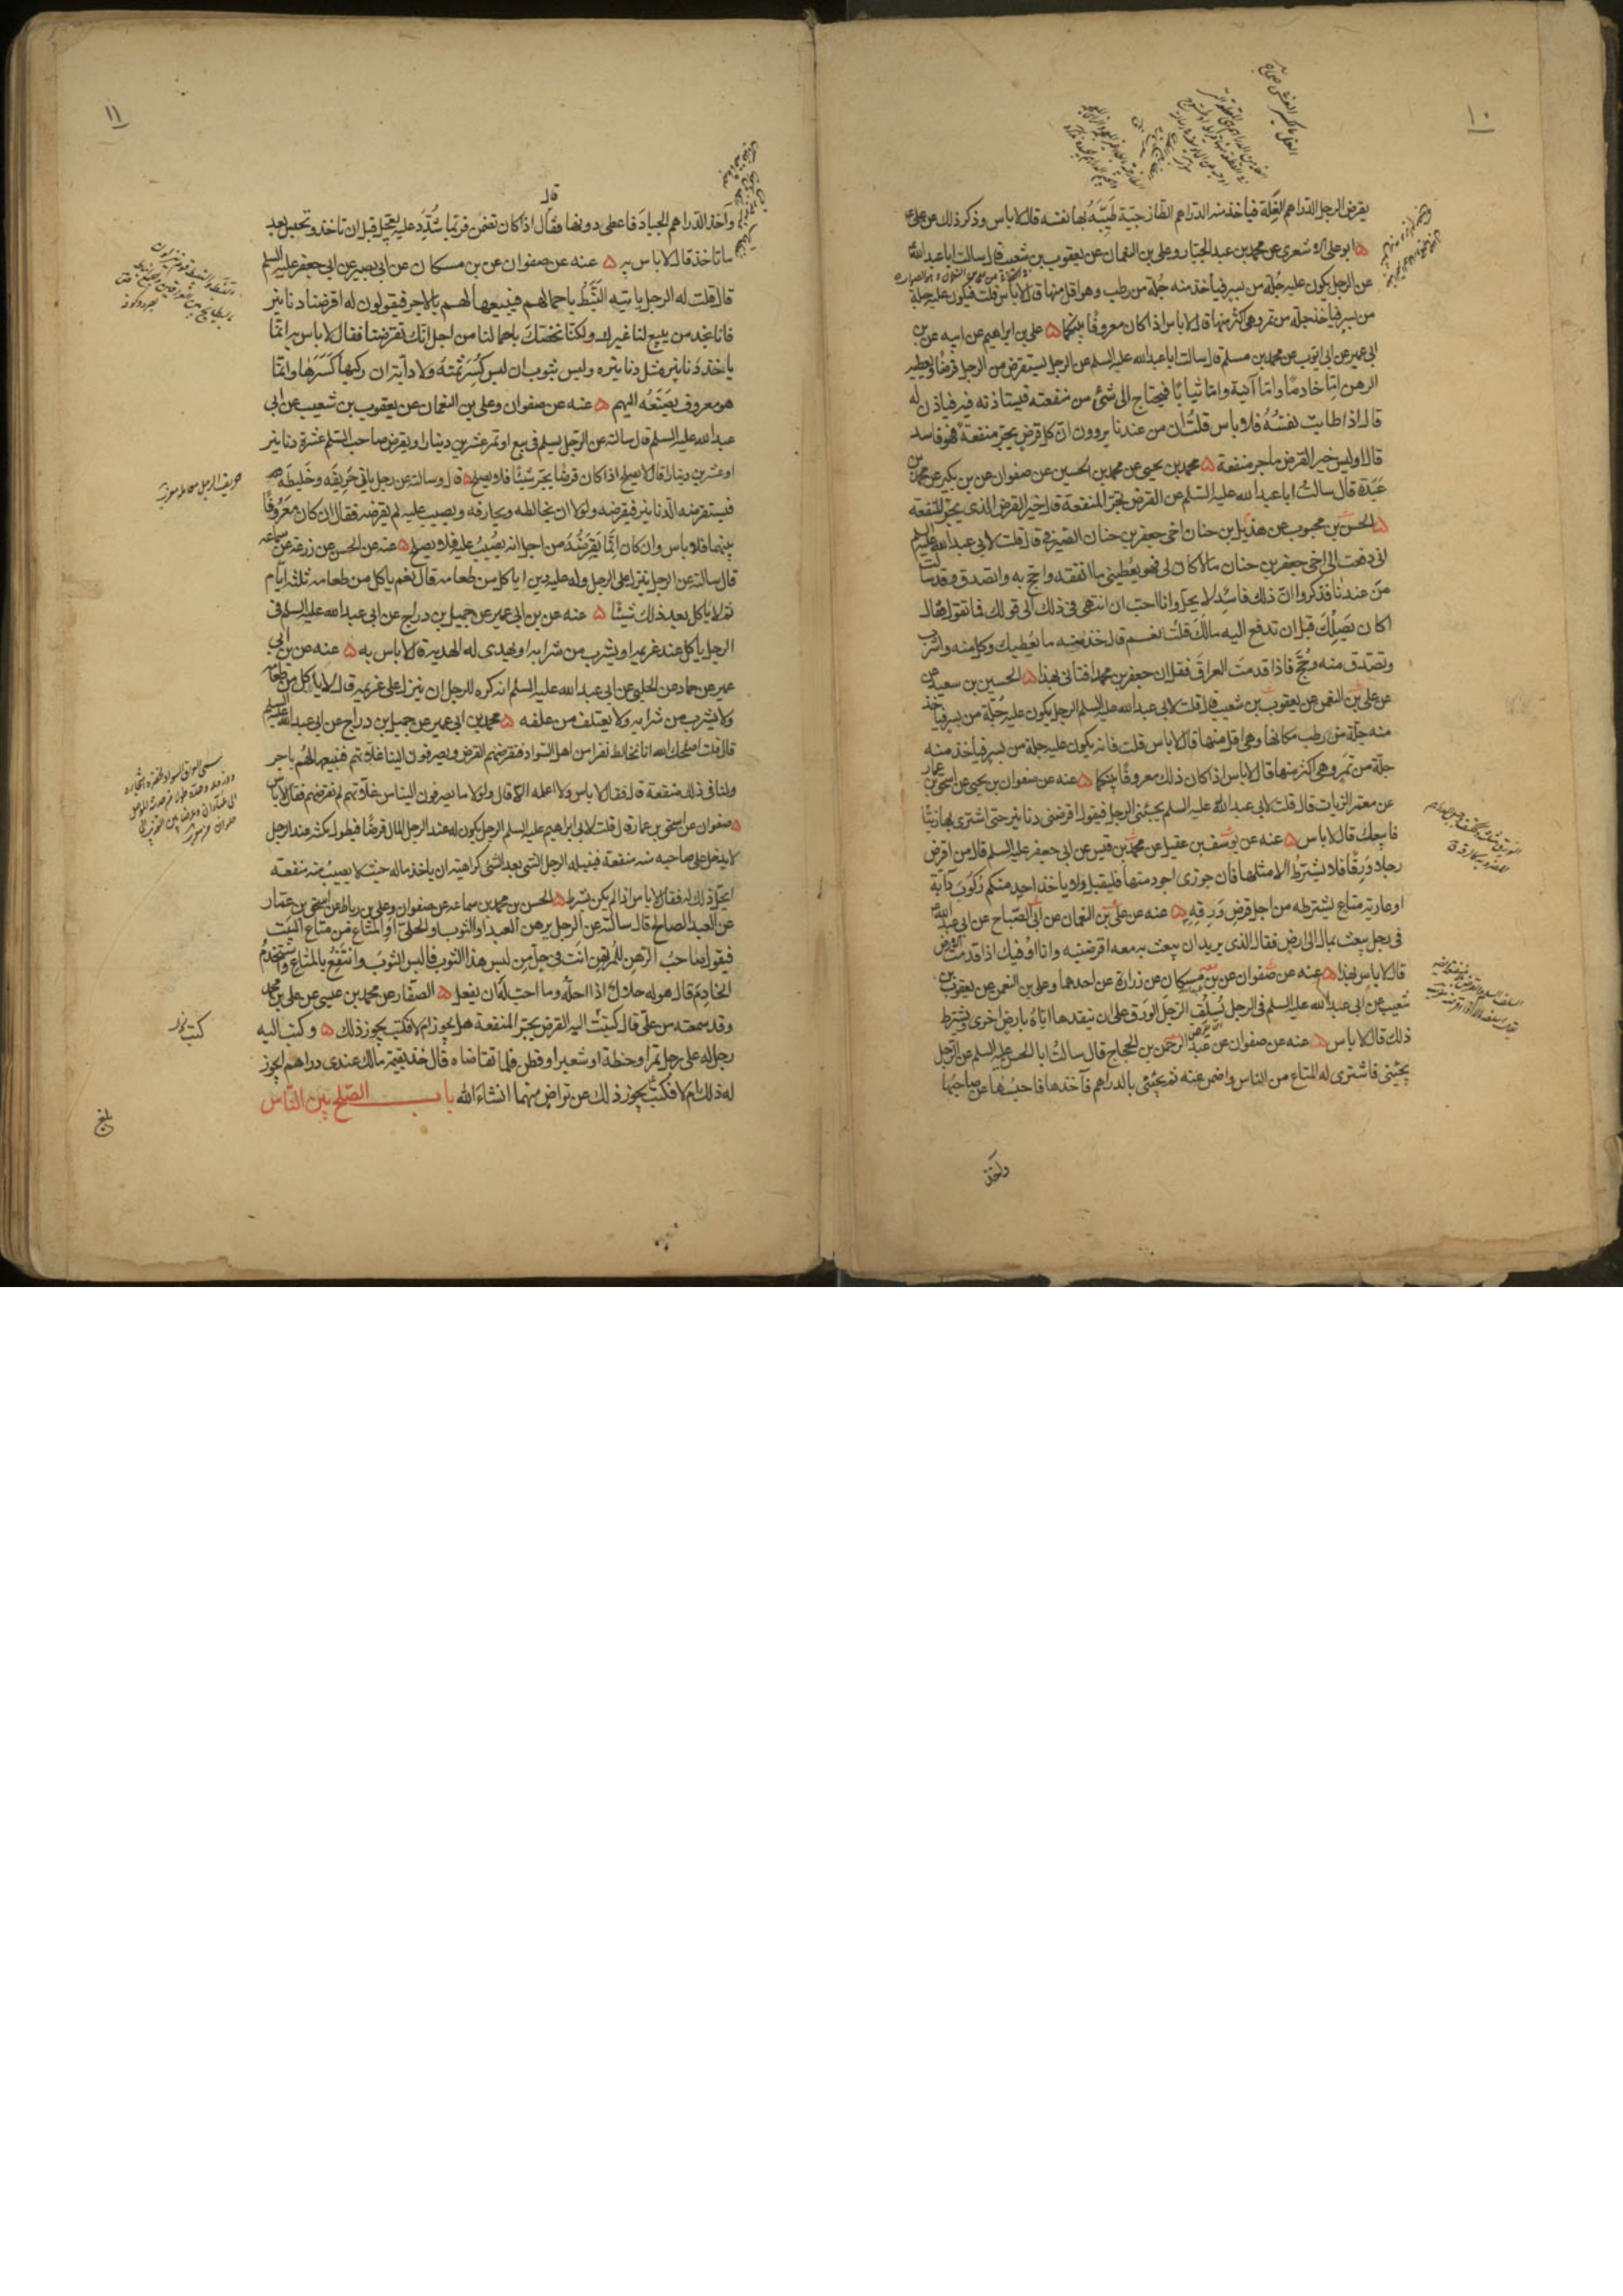 ١٠
يقرض الرجل الدراهم الغلة فياخذ منه الدراهم الطازجية طيبة بها نفسه قال لا باس وذكر ذلك عن علي ع
ابو علي الاشعري عن محمد بن عبد الجبار وعلي بن النعمان عن يعقوب بن شعيب قال سالت ابا عبد الله
عن الرجل يكون عليه جلة من بسر فياخذ منه جلة من رطب وهو اقل منها قال لا باس قلت فيكون عليه جلة
من بسر فياخذ جلة من تمر وهي اكثر منها قال لا باس اذا كان معروفا بينكما علي بن ابراهيم عن ابيه عن بن
ابي عمير عن ابي ايوب عن محمد بن مسلم قال سالت ابا عبد الله عليه السلم عن الرجل يستقرض من الرجل قرضا ويعطيه
الرهن اما خادما واما آنية واما ثيابا فيحتاج الى شئ من منفعته فيستاذنه فيه فياذن له
قال اذا طابت نفسه فلا باس قلت ان من عندنا يروون ان كل قرض يجر منفعة فهو فاسد
قال اوليس خير القرض ما جر منفعة محمد بن يحيى عن محمد بن الحسين عن صفوان عن بن بكير عن محمد بن
عبدة قال سالت ابا عبد الله عليه السلم عن القرض يجر المنفعة قال خير القرض الذي يجر المنفعة
الحسن بن محبوب عن هذيل بن حنان اخي جعفر بن حنان الصيرفي قال قلت لابي عبد الله عليه السلم
اني دفعت الى اخي جعفر بن حنان مالا كان لي فهو يعطيني ما انفقه واحج به واتصدق وقد سالت
من عندنا فذكروا ان ذلك فاسد لا يحل وانا احب ان انتهى في ذلك الى قولك فما تقول فقال
اكان يصلك قبل ان تدفع اليه مالك قلت نعم قال خذ منه ما يعطيك وكل منه واشرب
وتصدق منه وحج فاذا قدمت العراق فقل ان جعفر بن محمد افتاني بهذا الحسين بن سعيد عن
علي بن النعمن عن يعقوب بن شعيب قال قلت لابي عبد الله عليه السلم الرجل يكون عليه جلة من بسر فياخذ
منه جلة من رطب مكانها وهي اقل منها قال لا باس قلت فانه يكون عليه جلة من بسر فياخذ منه
جلة من تمر وهي اكثر منها قال لا باس اذا كان ذلك معروفا بينكما عنه عن صفوان بن يحيى عن اسحق بن عمار
عن معتمر الزيات قال قلت لابي عبد الله عليه السلم يجيئني الرجل فيقول اقرضني دنانير حتى اشتري بها زيتا
فابيعك قال لا باس عنه عن يوسف بن عقيل عن محمد بن قيس عن ابي جعفر عليه السلم قال من اقرض
رجلا ورقا فلا يشترط الا مثلها فان جوزي اجود منها فليقبل ولا ياخذ احد منكم ركوب دابة
او عارية متاع يشترطه من اجل قرض ورقه عنه عن علي بن النعمان عن ابي الصباح عن ابي عبد الله
في رجل يبعث بمال الى ارض فقال الذي يريد ان يبعث به معه اقرضنيه وانا اوفيك اذا قدمت الارض
قال لا باس بهذا عنه عن صفوان عن بن مسكان عن زرارة عن احدهما وعلي بن النعمن عن يعقوب بن
شعيب عن ابي عبد الله عليه السلم في الرجل يسلف الرجل الورق على ان ينقدها اياه بارض اخرى ويشترط
ذلك قال لا باس عنه عن صفوان عن عبد الرحمن بن الحجاج قال سالت ابا الحسن عليه السلم عن الرجل
يجيئني فاشتري له المتاع من الناس واضمن عنه ثم يجيئني بالدراهم فآخذها فاحبسها عن صاحبها
واخذ
١١
وآخذ الدراهم الجياد فاعطي دونها فقال اذا كان تضمن فربما شدد عليه يعجل قبل ان تاخذ وتحبس بعد
ما تاخذ قال لا باس به عنه عن صفوان عن بن مسكان عن ابي بصير عن ابي جعفر عليه السلم
قال قلت له الرجل ياتيه النبط باحمالهم فيبيعها لهم بالاجر فيقولون له اقرضنا دنانير
فانا نجد من يبيع لنا غيرك ولكنا نخصك باحمالنا من اجل انك تقرضنا فقال لا باس به انما
ياخذ دنانير مثل دنانيره وليس بثوب ان لبس كسر ثمنه ولا دابة ان ركبها كسرها وانما
هو معروف يصنعه اليهم عنه عن صفوان وعلي بن النعمان عن يعقوب بن شعيب عن ابي
عبد الله عليه السلم قال سالته عن الرجل يسلم في بيع او تمر عشرين دينارا ويقرض صاحب السلم عشرة دنانير
او عشرين دينارا قال لا يصلح اذا كان قرضا يجر شيئا فلا يصلح قال وسالته عن رجل ياتي حريفه وخليطه
فيستقرضه الدنانير فيقرضه ولولا ان يخالطه ويحارفه ويصيب عليه لم يقرضه فقال ان كان معروفا
بينهما فلا باس وان كان انما يقرضه من اجل انه يصيب عليه فلا يصلح عنه عن الحسن عن زرعة عن سماعه
قال سالته عن الرجل ينزل على الرجل وله عليه دين اياكل من طعامه قال نعم ياكل من طعامه ثلثة ايام
ثم لا ياكل بعد ذلك شيئا عنه عن بن ابي عمير عن جميل بن دراج عن ابي عبد الله عليه السلم في
الرجل ياكل عند غريمه او يشرب من شرابه او يهدى له الهدية قال لا باس به عنه عن بن ابي
عمير عن حماد عن الحلبي عن ابي عبد الله عليه السلم انه كره للرجل ان ينزل على غريمه قال لا ياكل من طعامه
ولا يشرب من شرابه ولا يعتلف من علفه محمد بن ابي عمير عن جميل بن دراج عن ابي عبد الله عليه السلم
قال قلت اصلحك الله انا نخالط نفرا من اهل السواد فنقرضهم القرض ويصرفون الينا غلاتهم فنبيعها لهم باجر
ولنا في ذلك منفعة قال فقال لا باس ولا اعلمه الا قال ولولا ما يصرفون الينا من غلاتهم لم نقرضهم فقال لا باس
صفوان عن اسحق بن عمار قال قلت لابي ابراهيم عليه السلم الرجل يكون له عند الرجل المال قرضا فيطول مكثه عند الرجل
لا يدخل على صاحبه منه منفعة فينيله الرجل الشئ بعد الشئ كراهية ان ياخذ ماله حيث لا يصيب منه منفعة
ايحل ذلك له فقال لا باس اذا لم يكن بشرط الحسن بن محمد بن سماعه عن صفوان وعلي بن رباط عن اسحق بن عمار
عن العبد الصالح قال سالته عن الرجل يرهن العبد او الثوب او الحلي او المتاع من متاع البيت
فيقول صاحب الرهن للمرتهن انت في حل من لبس هذا الثوب فالبس الثوب وانتفع بالمتاع واستخدم
الخادم قال هو له حلال اذا احله وما احب له ان يفعل الصفار عن محمد بن عيسى عن علي بن محمد
وقد سمعته من علي قال كتبت اليه القرض يجر المنفعة هل يجوز ام لا فكتب يجوز ذلك وكتب اليه
رجل له على رجل تمر او حنطة او شعير او قطن فلما تقاضاه قال خذ بقيمة مالك عندي دراهم ايجوز
له ذلك ام لا فكتب يجوز ذلك عن تراض منهما انشاء الله باب الصلح بين الناس
بلغ